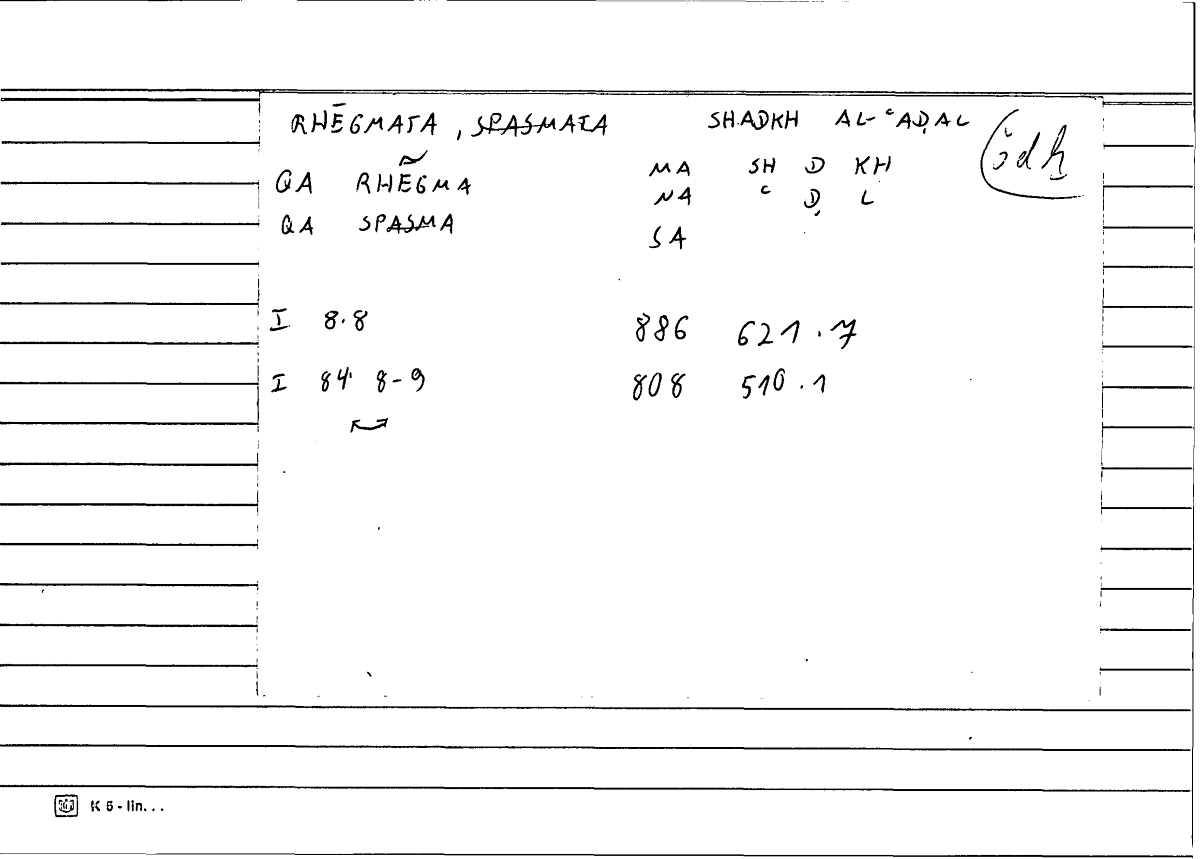 RHĒGMATA, SPASMATA SHADKH AL-ʿAḌAL
šdḫ
QA RHĒ̃GMA MA SH D KH
NA ʿ Ḍ L
QA SPASMA SA
I 8.8 886 621.7
I 84 8-9 808 510.1
K 5-lin...